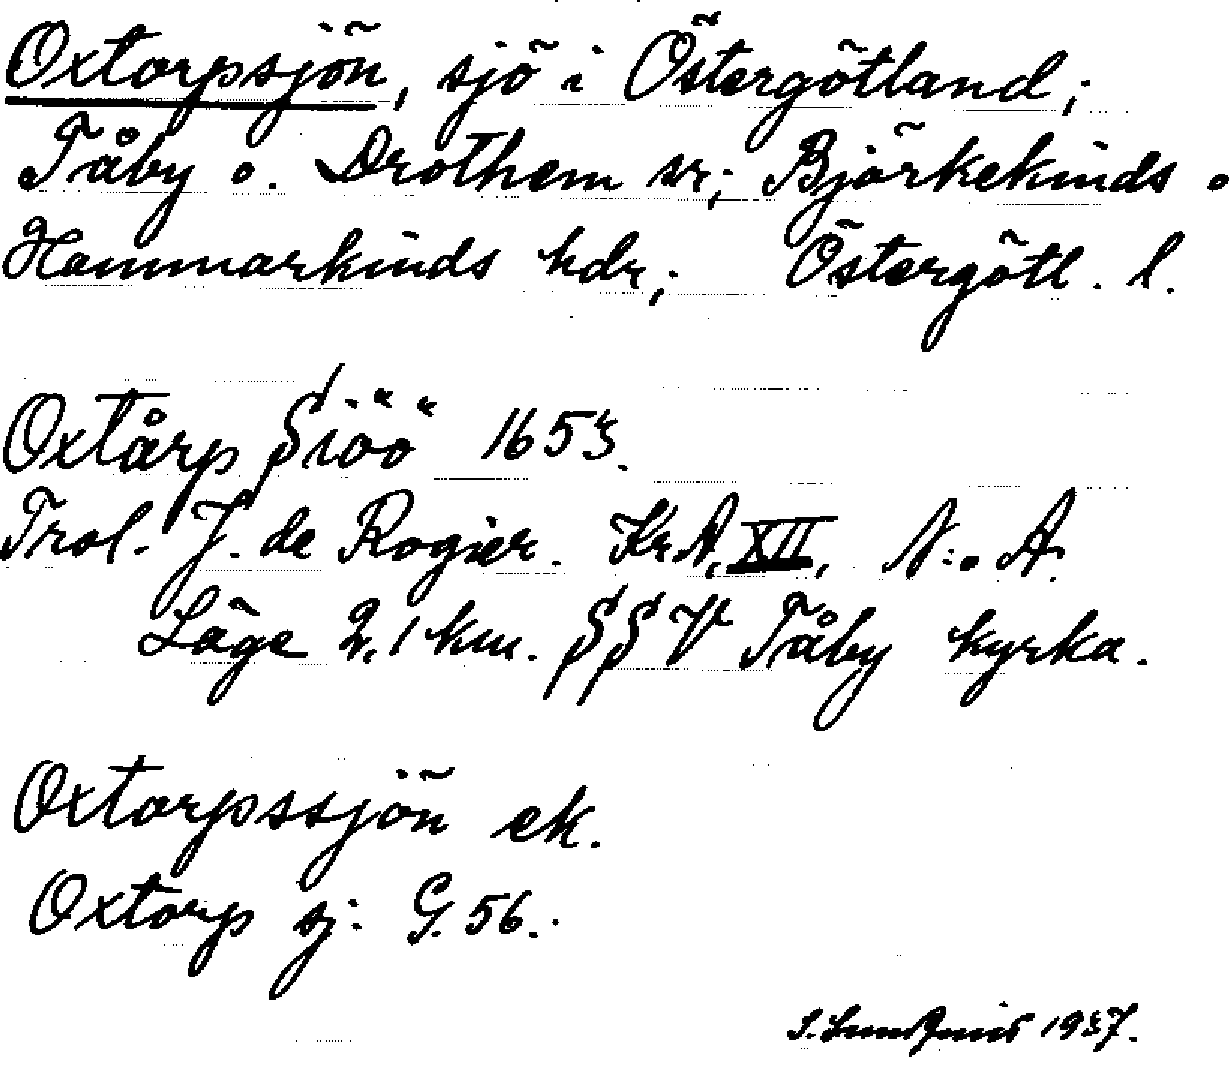 Oxtorpsjön, sjö i Östergötland;
Tåby o. Drothem snr; Björkekinds o
Hammarkinds hdr; Östergötl. l.
Oxtårp Siöö 1653.
Trol. J. de Rogier. KrA, XII, N:o A.
Läge 2,1 km. SSV Tåby kyrka.
Oxtorpssjön ek.
Oxtorp sj: G. 56.
1937.